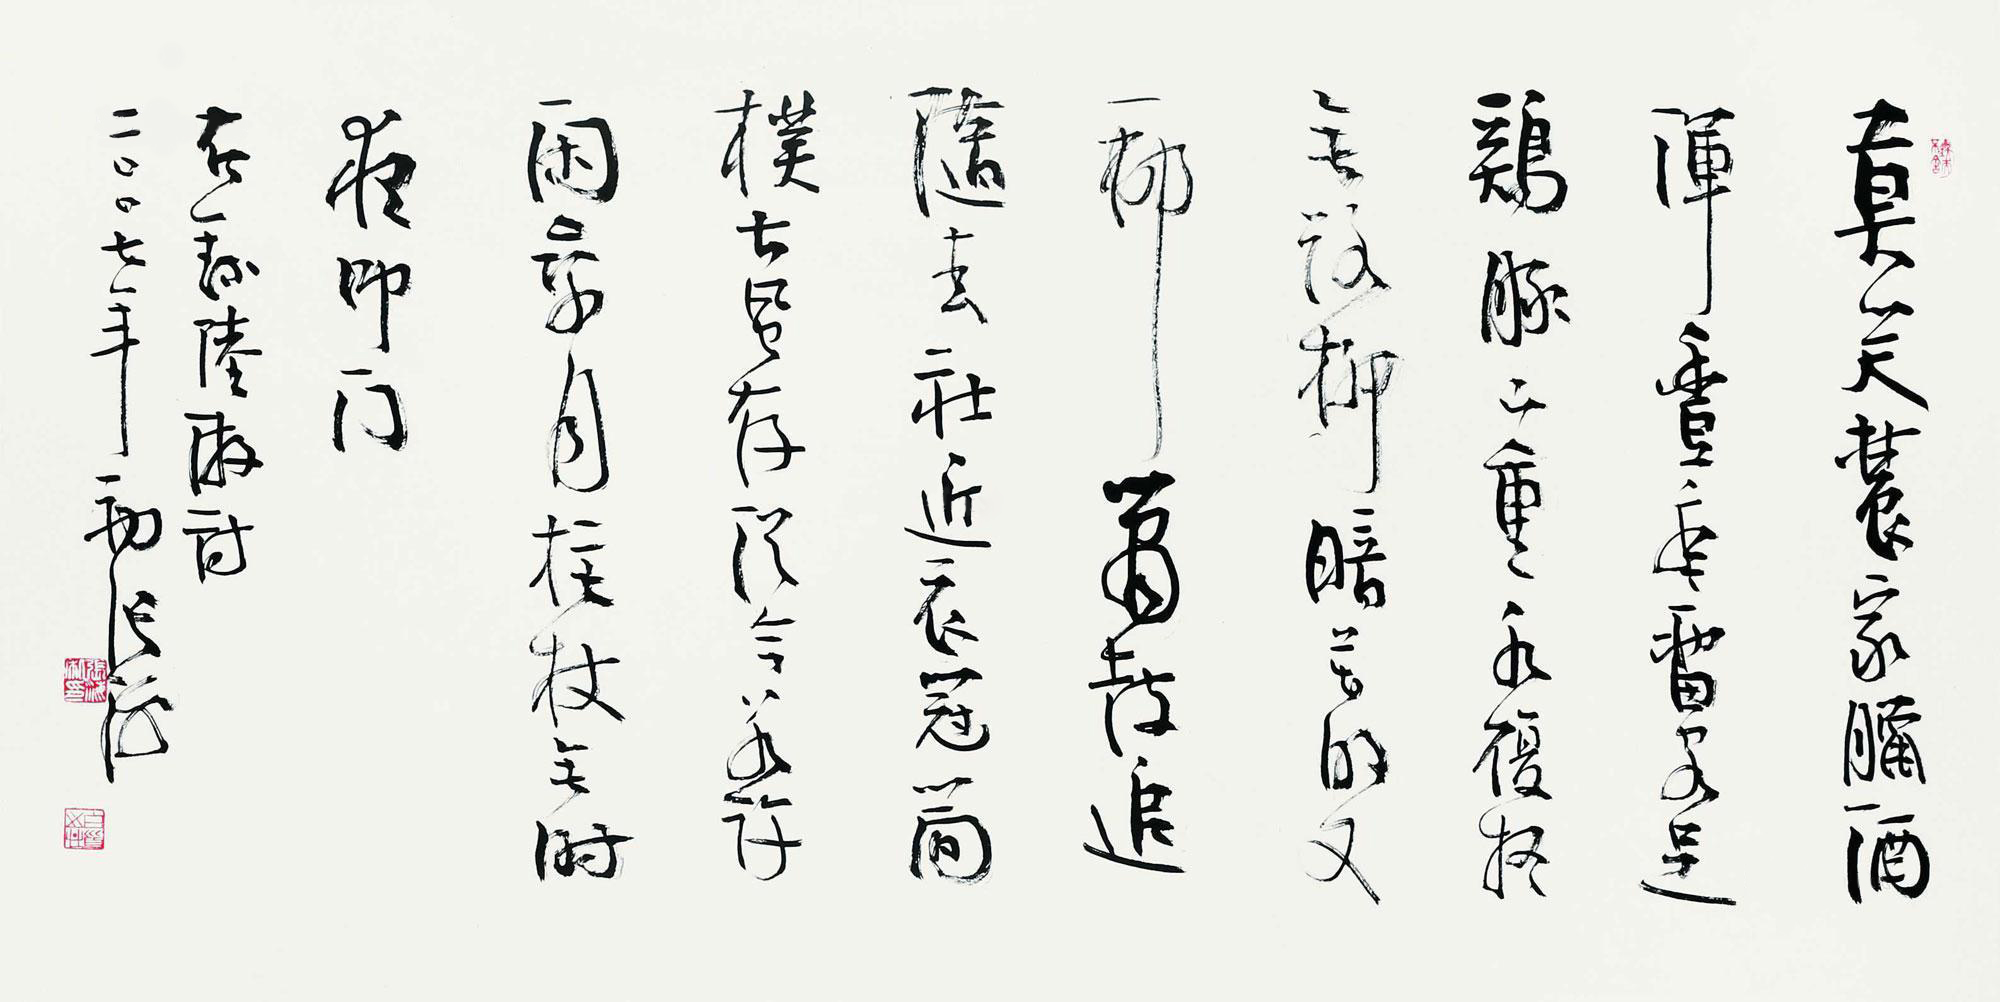 莫笑農家臘酒
渾豐年留客足
鷄豚山重水復疑
无路柳暗花明又
一邨簫鼓追
隨春社近衣冠簡
樸古風存從今若許
閑乘月拄杖无時
夜叩门
右録陸游詩
二〇〇七年初張海